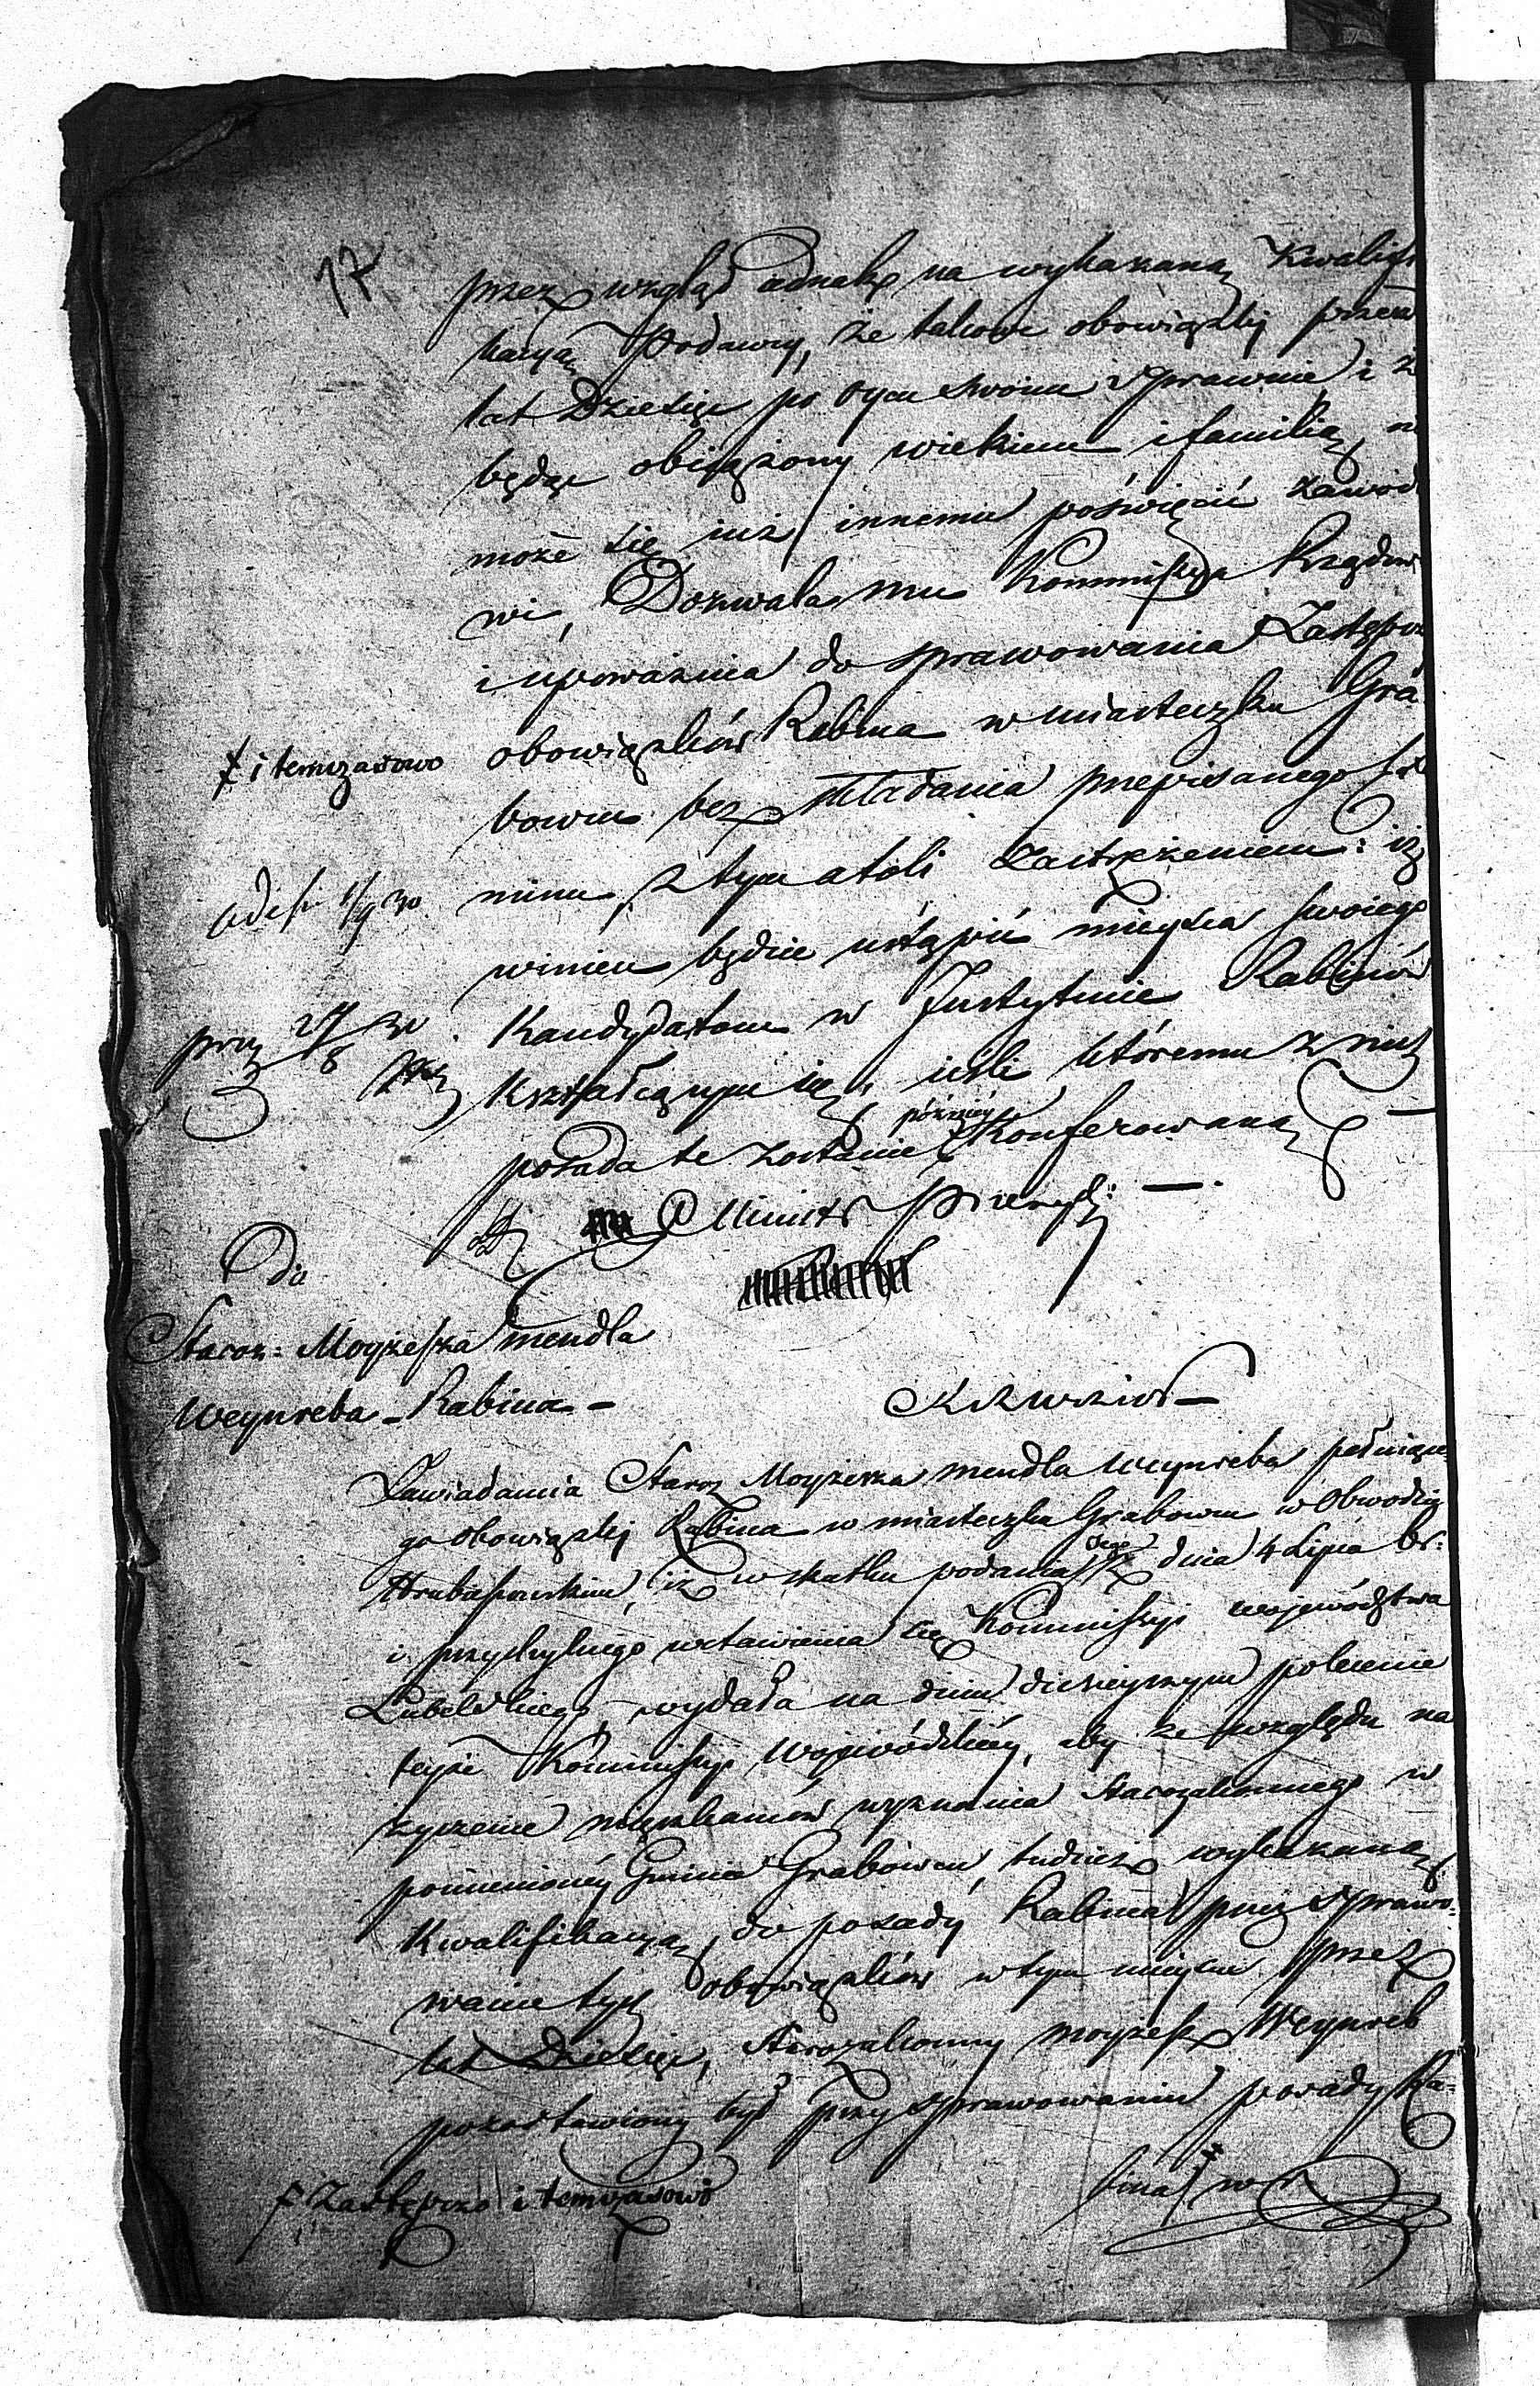 17
przez wzgląd iednak na wykazaną Kwalifi
kacyą Podawcy, że takowe obowiązki przez
lat Dziesięć po Oycu swoim sprawnie i
będąc obciążony wiekiem i familią, ni
może się iuż innemu poświęcić zawod
wi, Dozwala mu Kommissya Rządow
i upoważnia do sprawowania Zastępcz
ł i temczasowo
obowiązków Rabina w miasteczku Gra
bowcu bez składania przepisanego
minu, z tym atoli zastrzeżeniem: iż
winien będzie ustąpić mieysca swoiego
Kandydatom w Instytucie Rabinów
kształcącym się, ieśli któremu z nich
posada ta zostanie późniey Konferowaną —
odesł. 1/9 30.
prz 27/8 30
Minist Prezyd: —
Do
Staroz: Moyżesza Mendla
Weynreba – Rabina –
KRzWRiOP –
Zawiadamia Staroz Moyżesza Mendla Weynreba pełniące-
go obowiązki Rabina w miasteczku Grabowcu w Obwodzie
Hrubieszowskim, iż w skutku podania Jego dnia 4 Lipca br:
i przychylnego wstawienia się Kommissyi Województwa
Lubelskiego, wydała na dniu dzisieyszym polecenie
teyże Kommissyi Wojewódzkiéy, aby ze względu na
życzenie mięszkańców wyznania Starozakonnego w
pomienionéy Gminie Grabowcu, tudzież wykazaną
Kwalifikacyą, do posady Rabina przez sprawo-
wanie tych obowiązków w tym mieyscu przez
lat Dziesięć, Starozakonny Moyżesz Weynreb
pozostawiony był przy sprawowaniu posady Ra-
bina ł w
ł Zastępczo i temczasowo